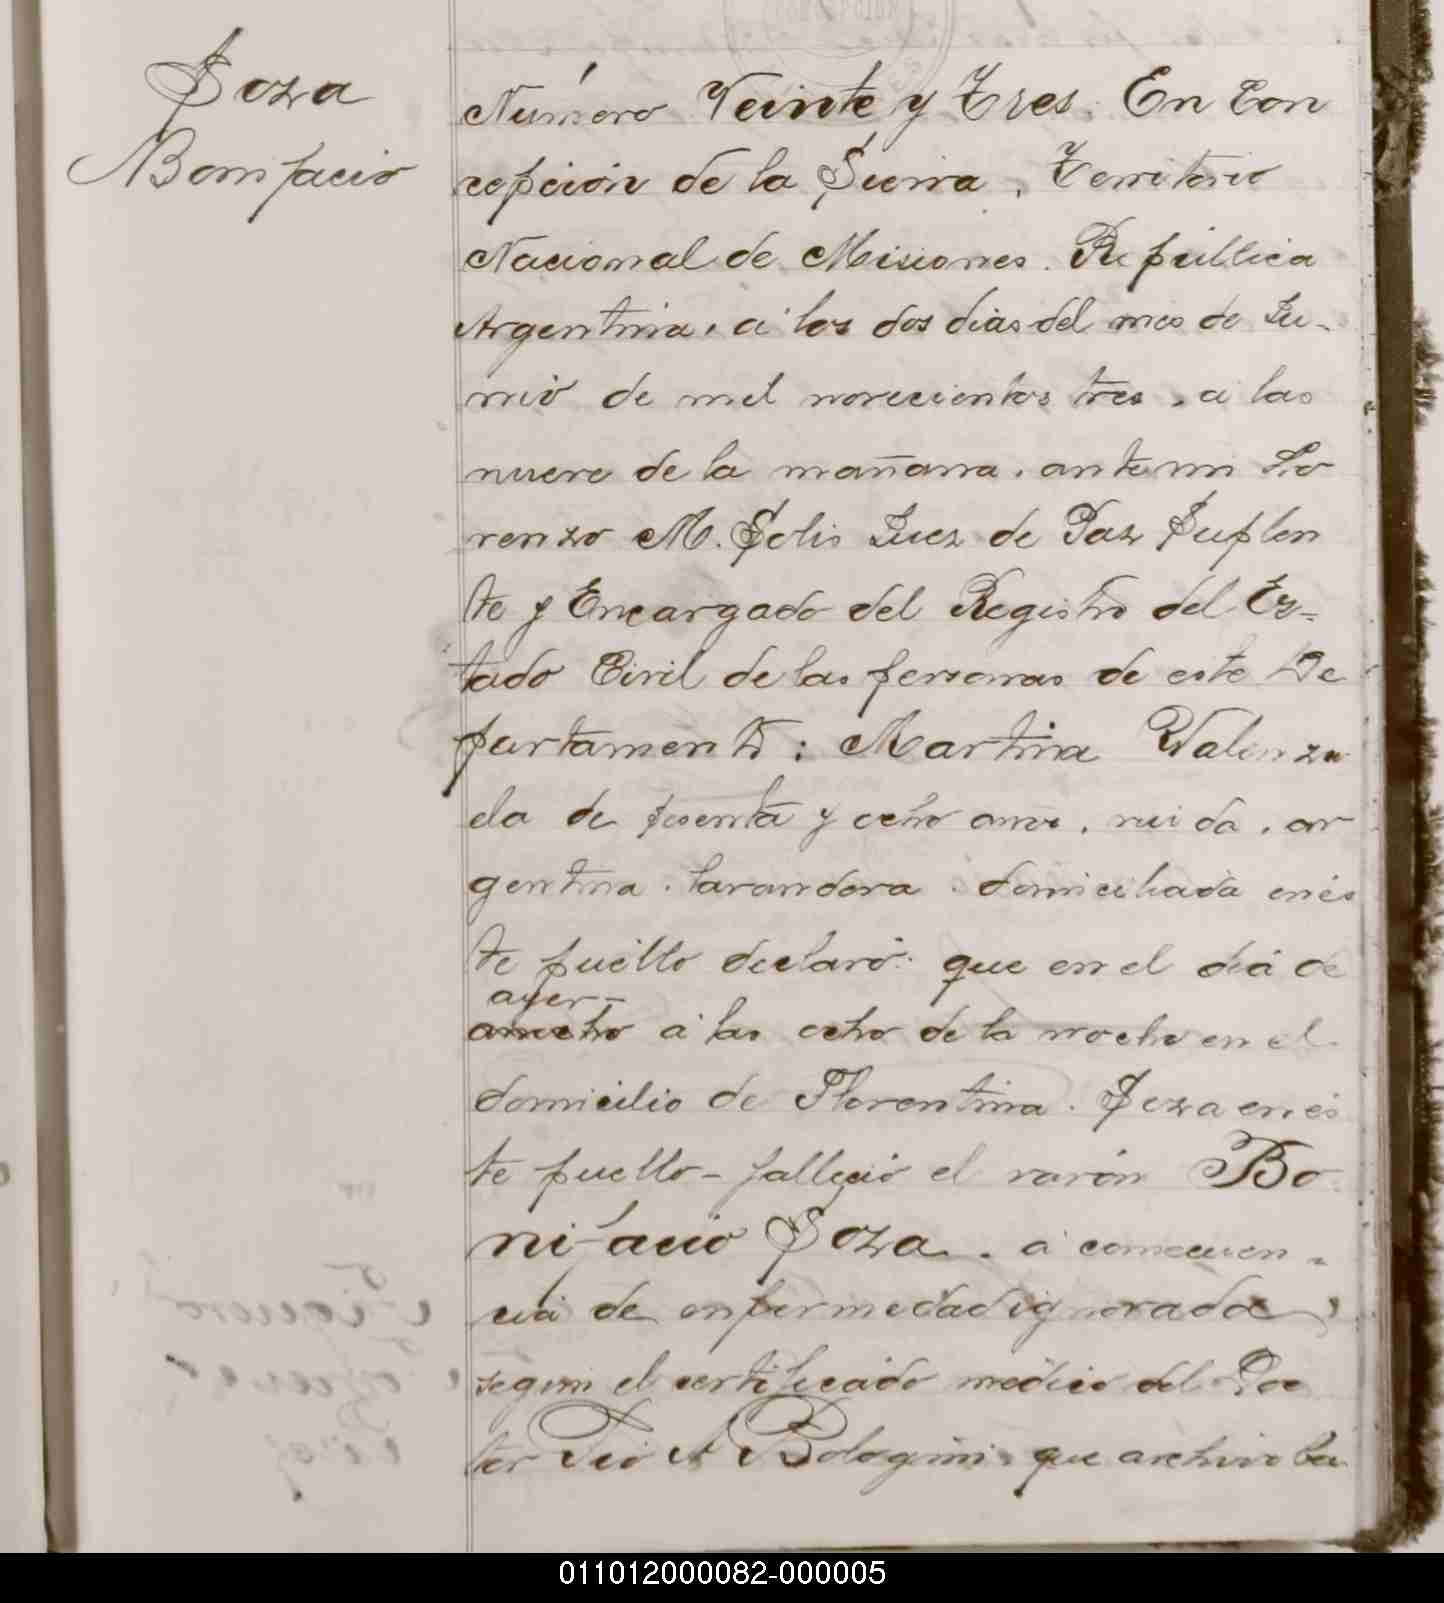 Soza
Bonifacio
Número Veinte y Tres. En Con
cepción de la Sierra, Territorio
Nacional de Misiones. República
Argentina, á los dos dias del mes de Ju-
nio de mil novecientos tres, á las
nueve de la mañana, ante mi Lo
renzo M. Solis Juez de Paz Suplen
te y Encargado del Registro del Es-
tado Civil de las personas de este De
partamento: Martina Valenzu
ela de sesenta y ocho años, viuda, ar
gentina, lavandera, domiciliada en és
te pueblo declaró: que en el dia de
ayer-
anocho á las ocho de la noche en el
domicilio de Florentina Soza en és
te pueblo - falleció el varón Bo
nifacio Soza, á consecuen-
cia de enfermedad ignorada,
segun el certificado médico del Doc
tor Pio A Bolognini, que archivo ba
011012000082-000005